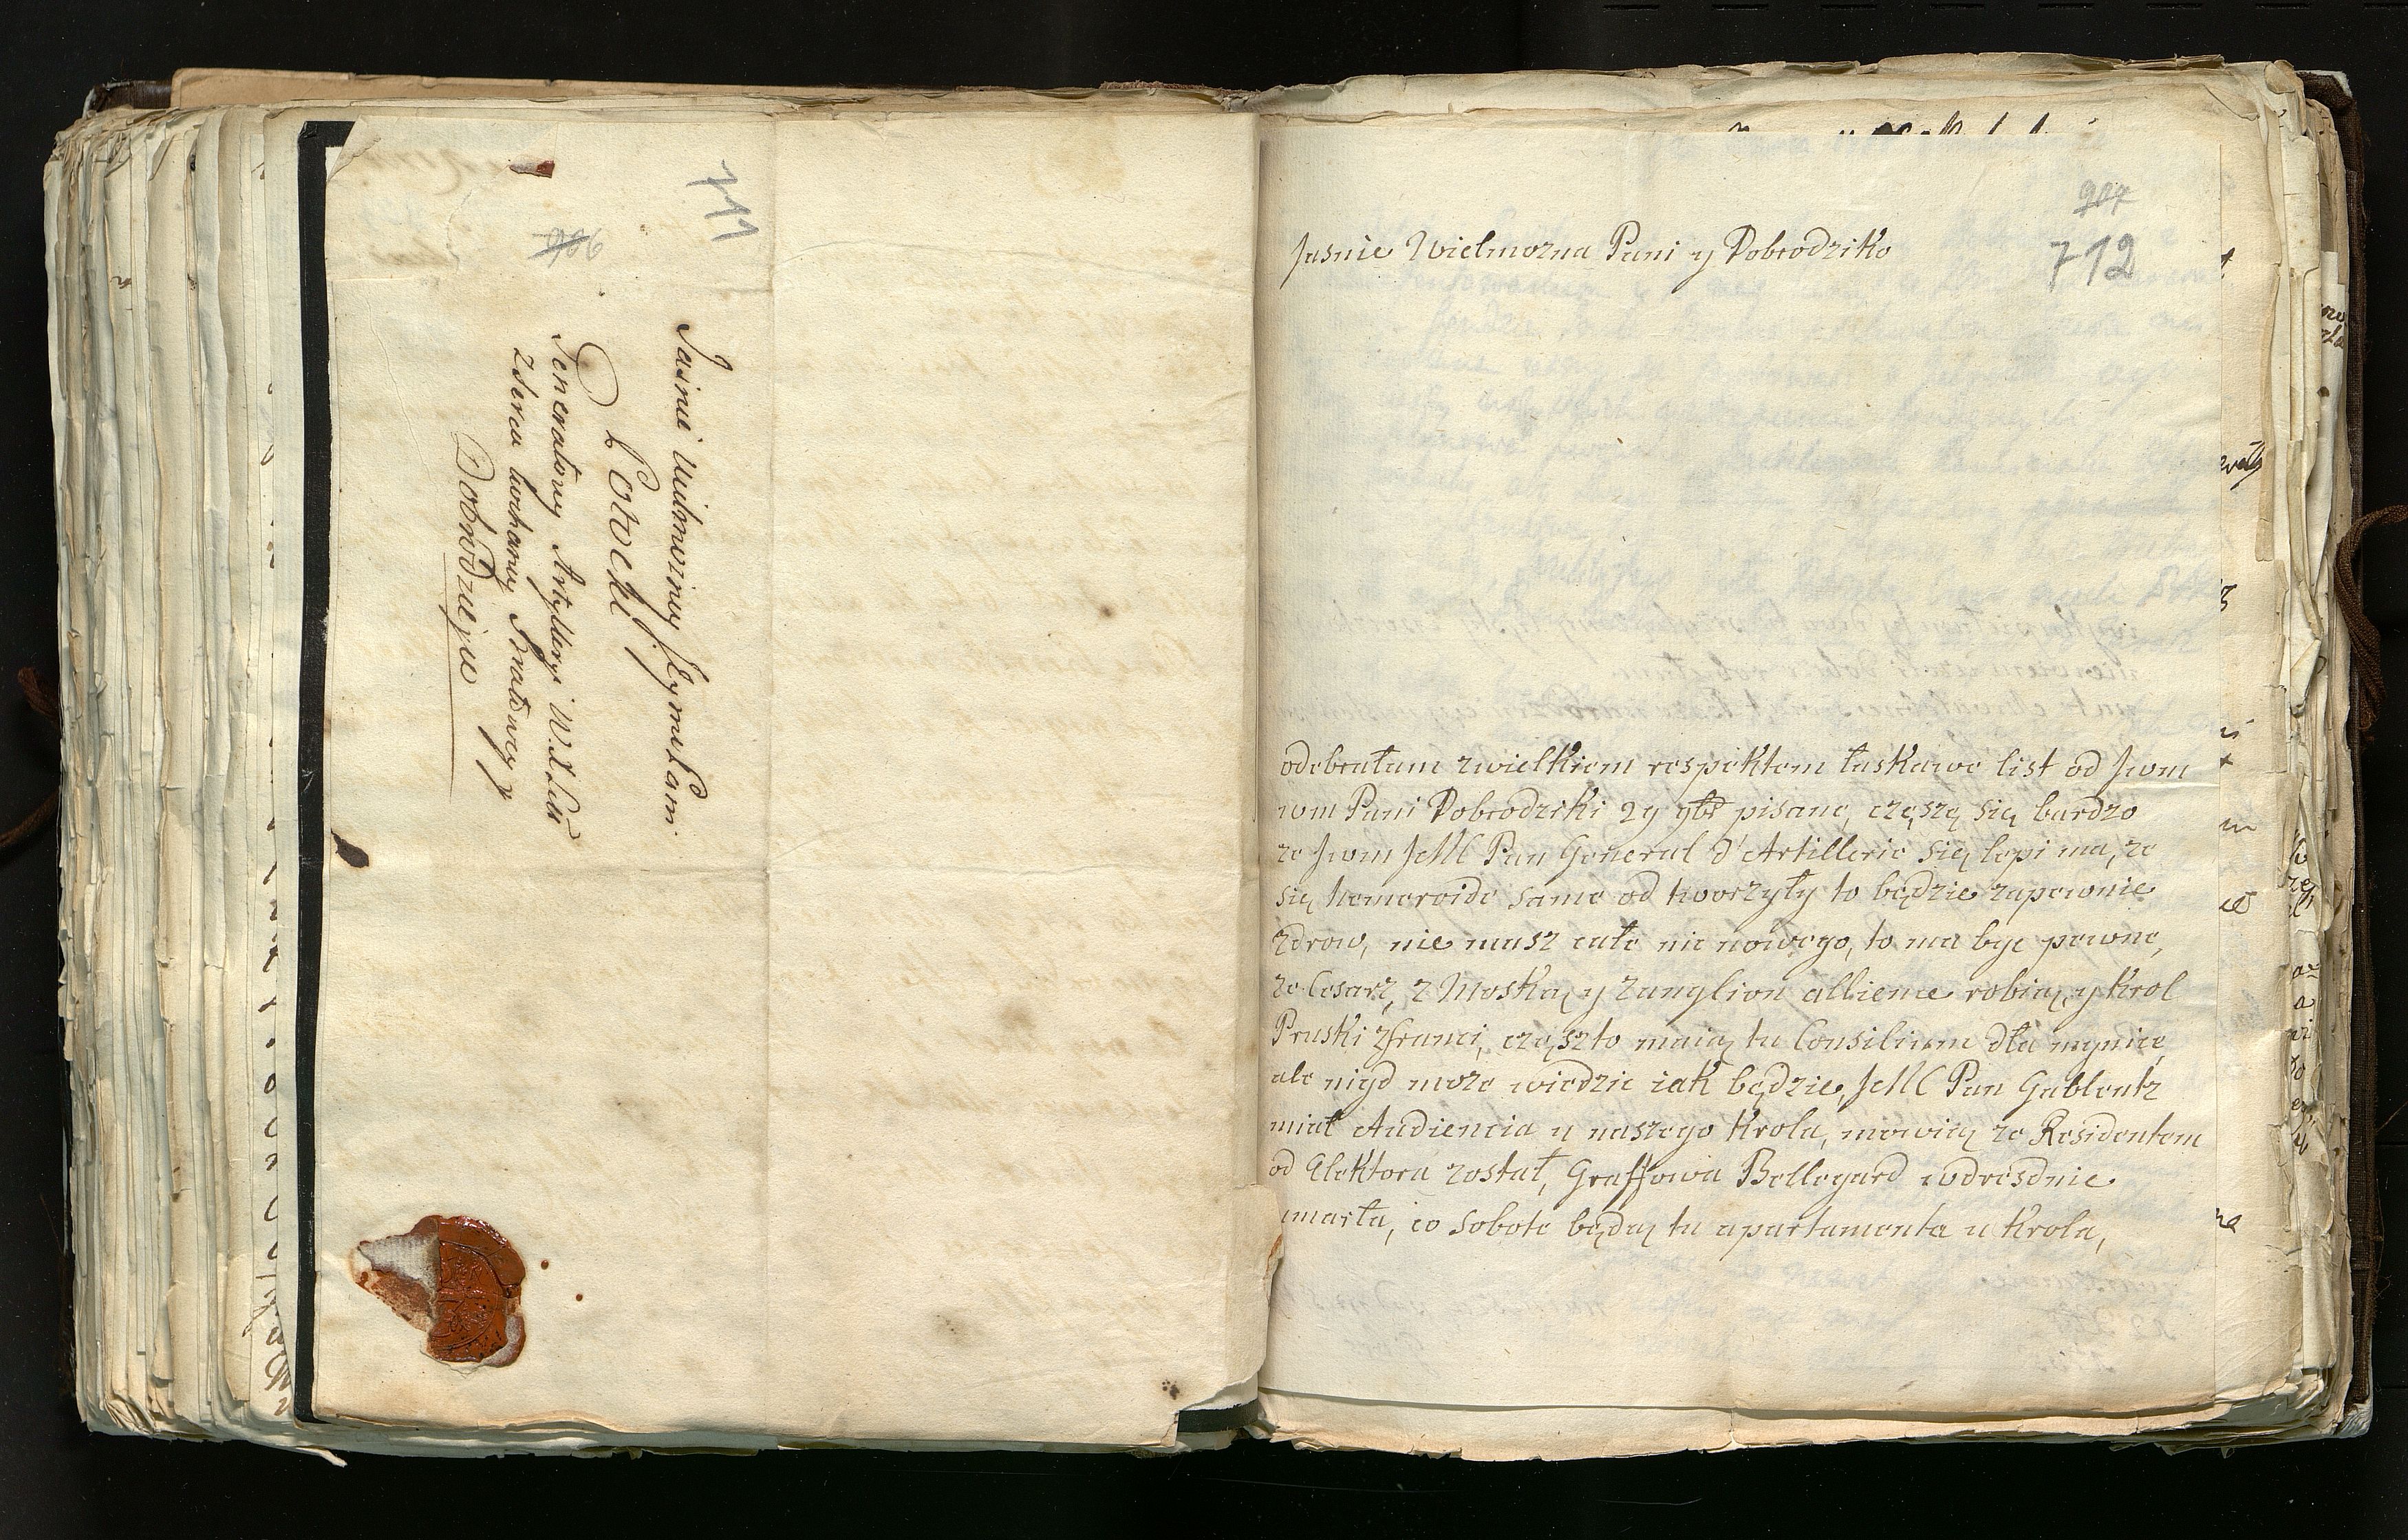 711
906
Jasnie Wielmozney Jeymc Pani
Potocki
Generałowy Artylleryi W. X Litt
z serca kochaney Bratowey y
Dobrodzieyce
907
712
Jasnie Wielmozna Pani y Dobrodziko
odebrałam zwielkiem respektem łaskawe list od Jwm
wm Pani Dobrodziki 29 9br pisane, czeszę się bardzo
ze Jwm JeMC Pan General d'Artillerie się lepi ma, ze
się hemeroide same od tworzyły to będzie zapewnie
zdrow, nie masz całe nic nowego, to ma byc pewne,
ze Cesarz, z Moską y zanglion allience robią, y Krol
Pruski zfranci, często maią tu Consilium dla mynice,
ale nigd moze wiedzie iak będzie, JeMC Pan Gablentz
miał Audiencia u naszego Krola, mowią ze Residentem
od Elektora został, Graffowa Bellegard wdresdnie
umarła, co Sobote będą tu apartamenta u Krola,